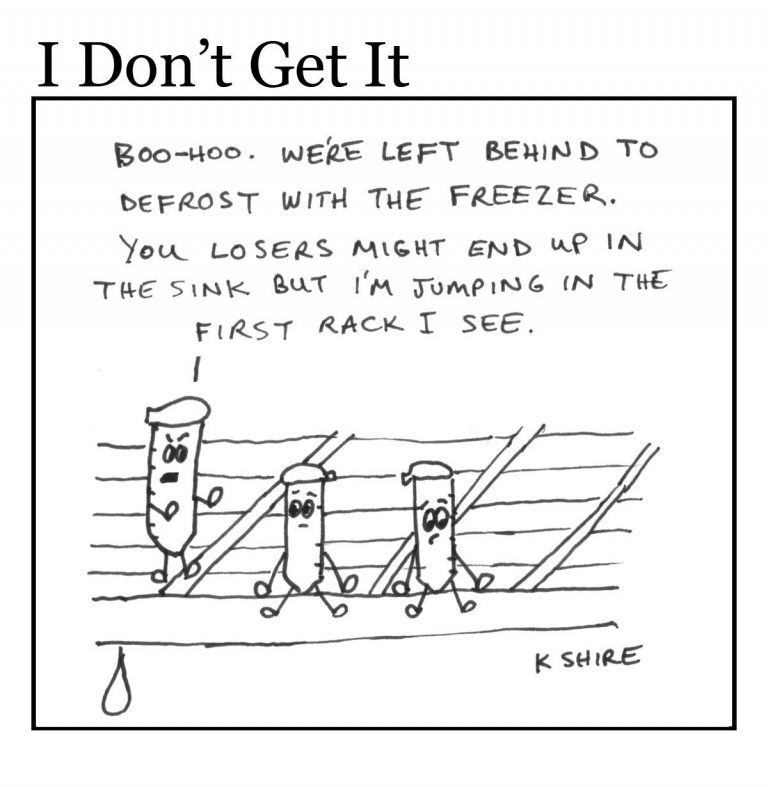 I Don't Get It
BOO-HOO. WE'RE LEFT BEHIND TO
DEFROST WITH THE FREEZER.
YOU LOSERS MIGHT END UP IN
THE SINK BUT I'M JUMPING IN THE
FIRST RACK I SEE.
K SHIRE